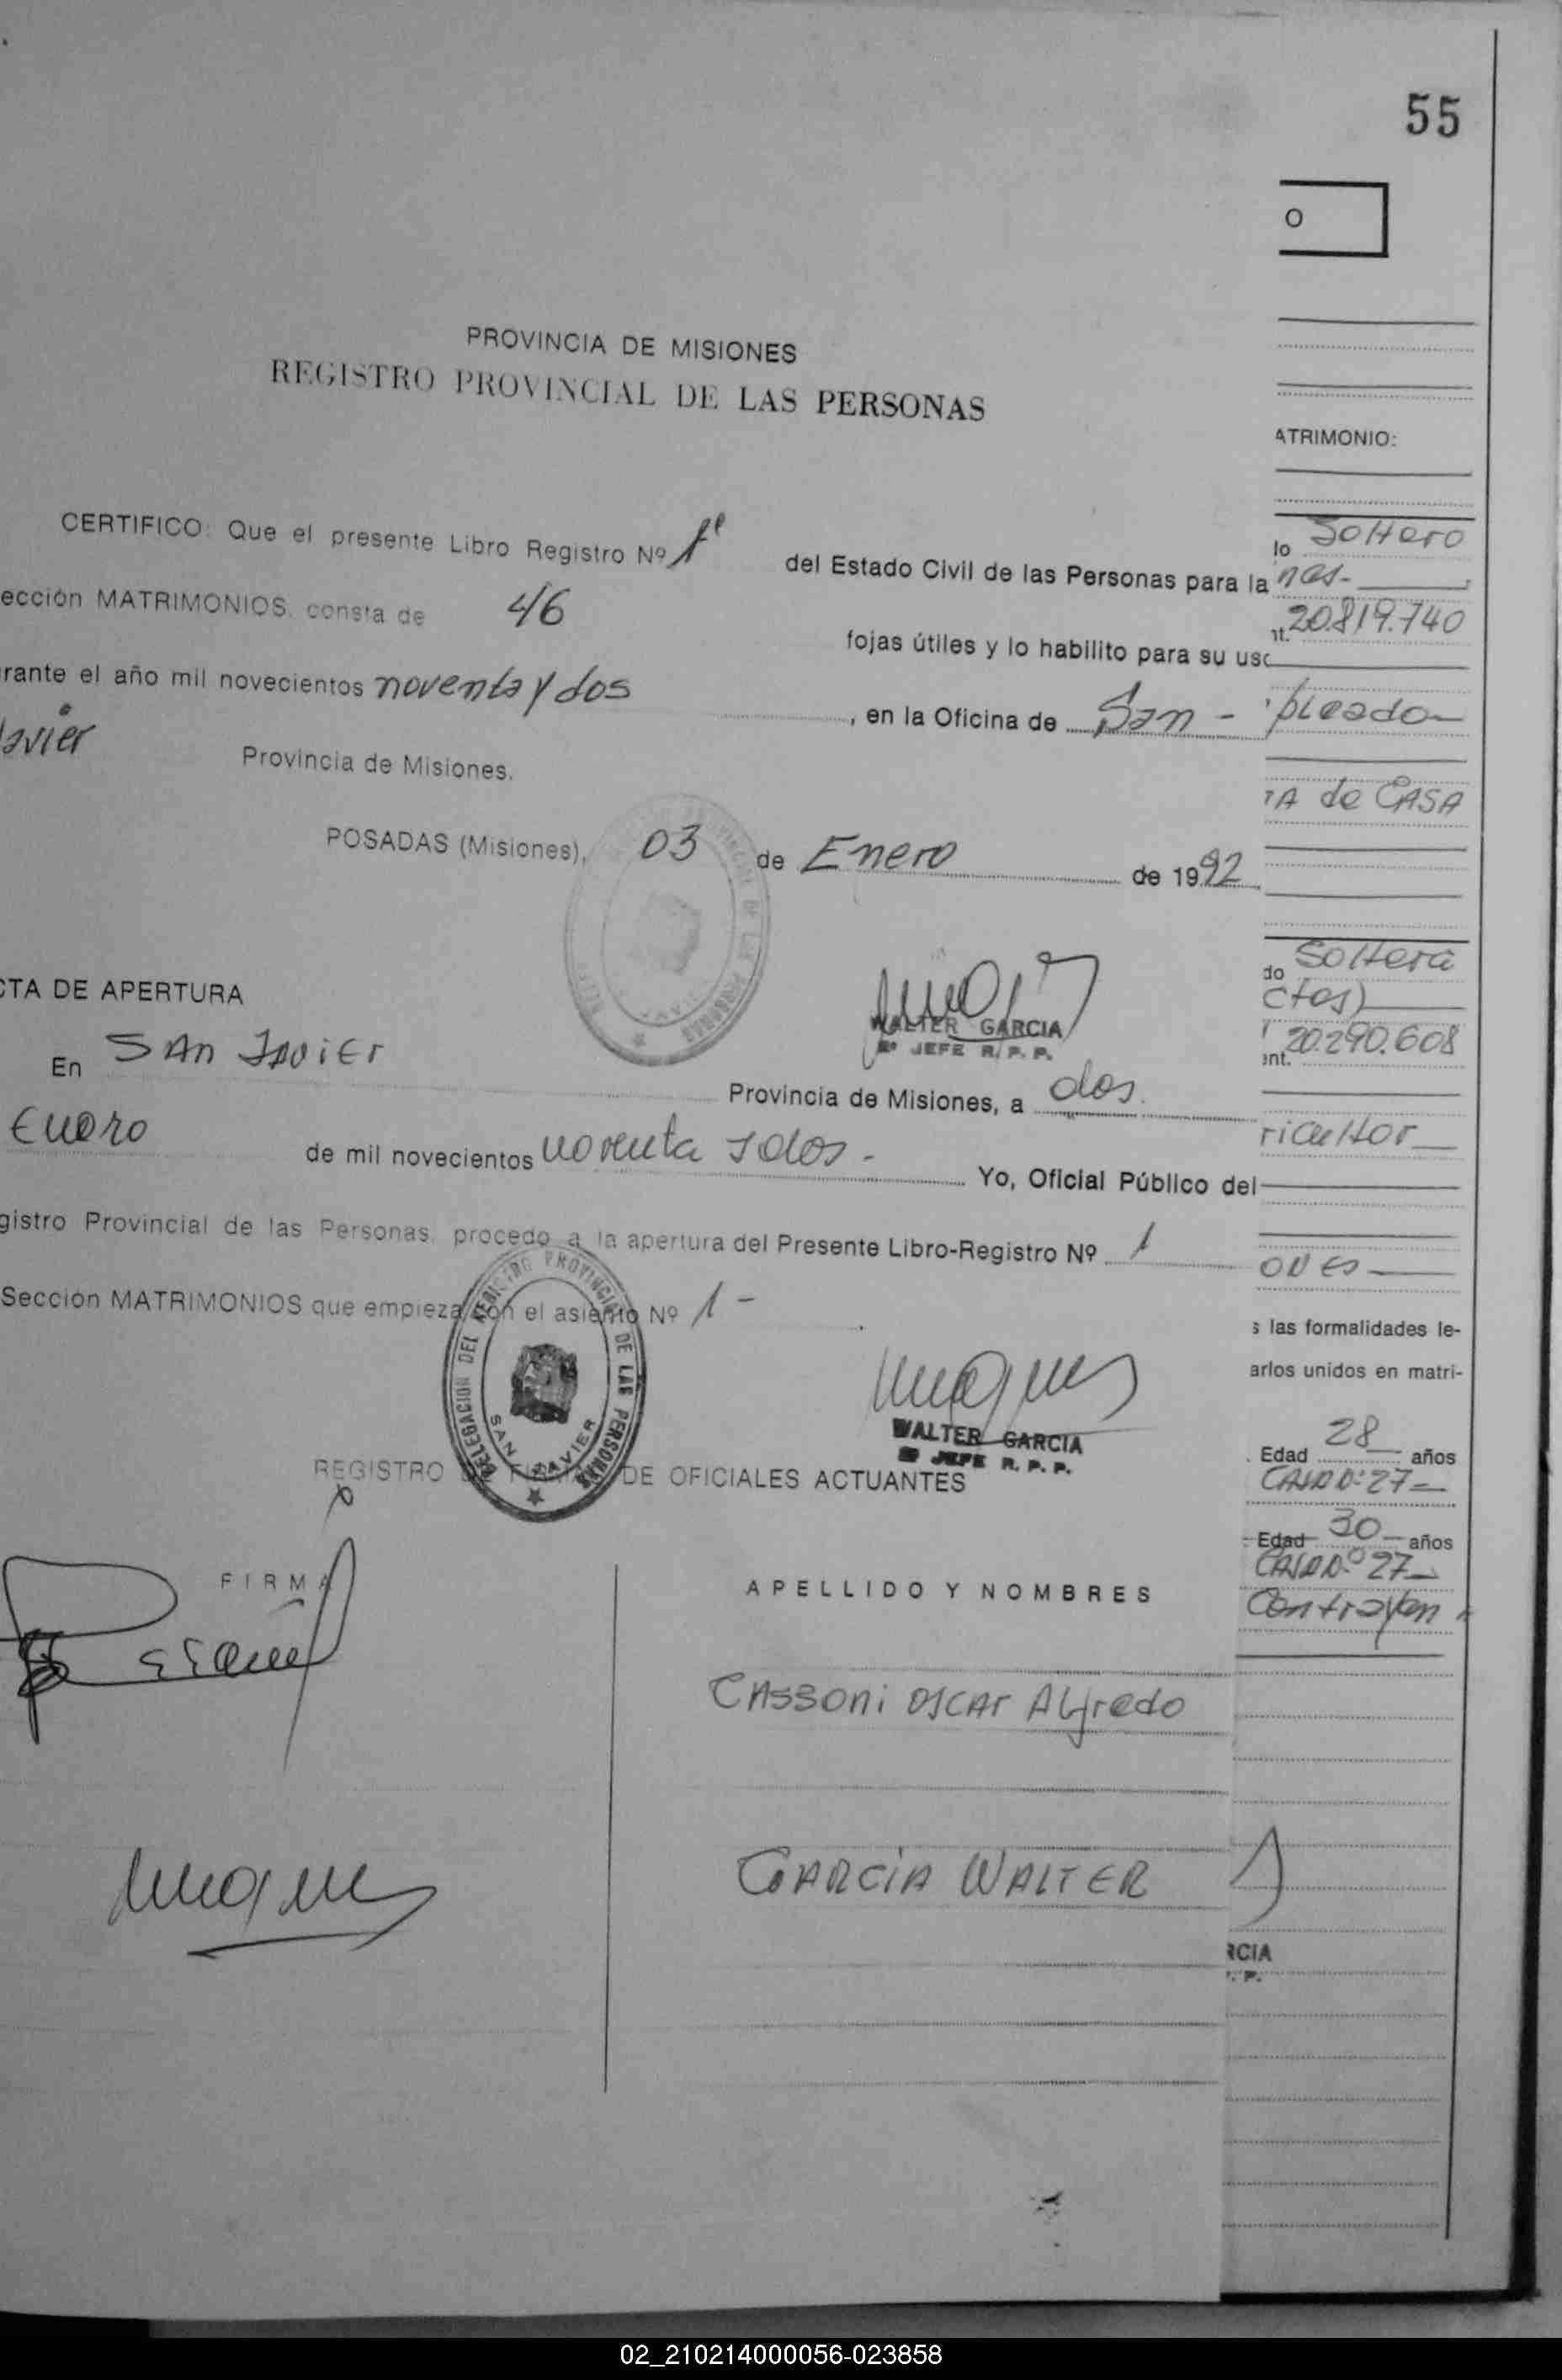 55
O
PROVINCIA DE MISIONES
REGISTRO PROVINCIAL DE LAS PERSONAS
ATRIMONIO:
CERTIFICO: Que el presente Libro Registro Nº 1º del Estado Civil de las Personas para la
ección MATRIMONIOS, consta de 46 fojas útiles y lo habilito para su uso
rante el año mil novecientos noventa y dos, en la Oficina de San -
Javier Provincia de Misiones.
POSADAS (Misiones), 03 de Enero de 1992
WALTER GARCIA
JEFE R. P. P.
CTA DE APERTURA
En SAN JAVIER Provincia de Misiones, a dos
Enero de mil novecientos noventa y dos - Yo, Oficial Público del
gistro Provincial de las Personas, procedo a la apertura del Presente Libro-Registro Nº 1
Sección MATRIMONIOS que empieza con el asiento Nº 1 -
DELEGACION DEL REGISTRO PROVINCIAL DE LAS PERSONAS
SAN JAVIER
WALTER GARCIA
JEFE R. P. P.
REGISTRO DE FIRMAS DE OFICIALES ACTUANTES
FIRMA
APELLIDO Y NOMBRES
CASSONI OSCAR Alfredo
GARCIA WALTER
lo Soltero
nes-
nt. 20.819.740
pleado
TA de CASA
do Soltera
ctos)
ent. 20.290.608
ricultor
ONES
s las formalidades le-
arlos unidos en matri-
Edad 28 años
27
Edad 30 años
27
Contrayen
RCIA
. P.
02_210214000056-023858